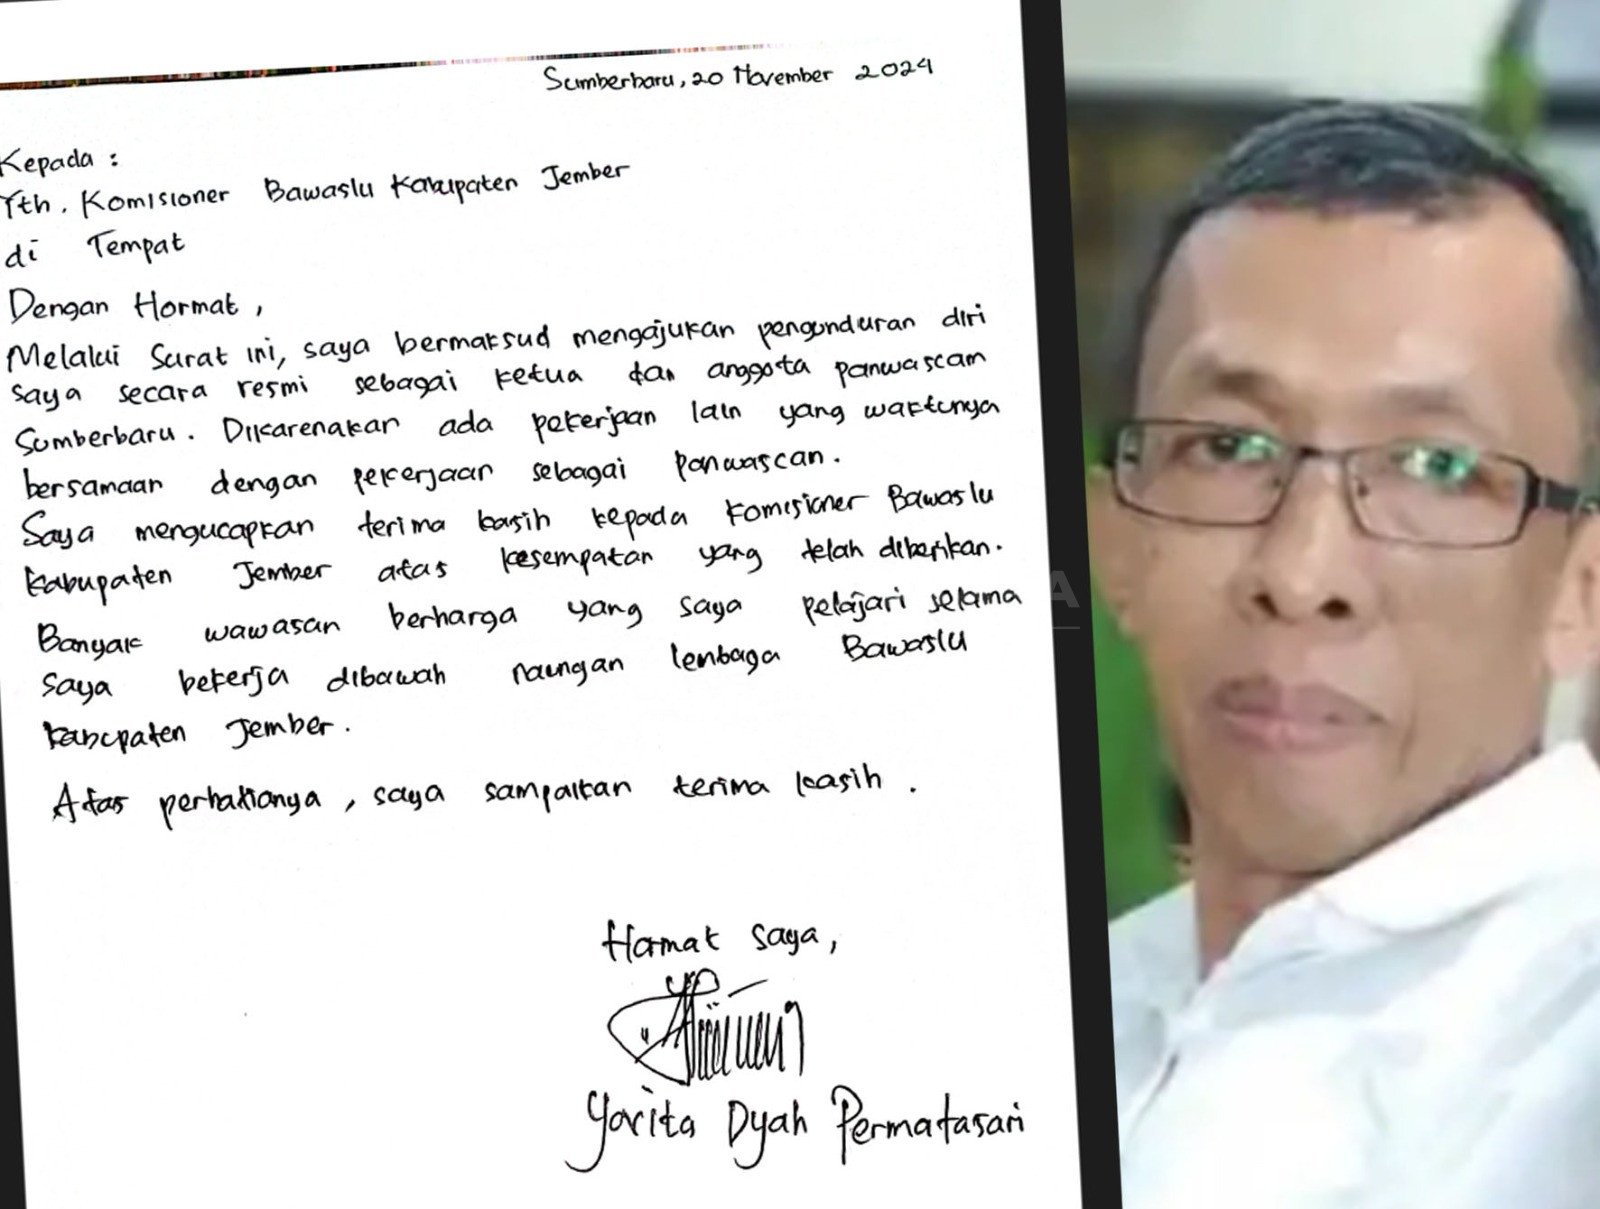 Sumberbaru, 20 November 2024
Kepada :
Yth. Komisioner Bawaslu Kabupaten Jember
di Tempat
Dengan Hormat,
Melalui Surat ini, saya bermaksud mengajukan pengunduran diri
saya secara resmi sebagai ketua dan anggota panwascam
Sumberbaru. Dikarenakan ada pekerjaan lain yang waktunya
bersamaan dengan pekerjaan sebagai Panwascan.
Saya mengucapkan terima kasih kepada Komisioner Bawaslu
Kabupaten Jember atas kesempatan yang telah diberikan.
Banyak wawasan berharga yang saya pelajari selama
saya bekerja dibawah naungan lembaga Bawaslu
Kabupaten Jember.
Atas perhatianya, saya sampaikan terima kasih.
Hormat saya,
Yorita Dyah Permatasari